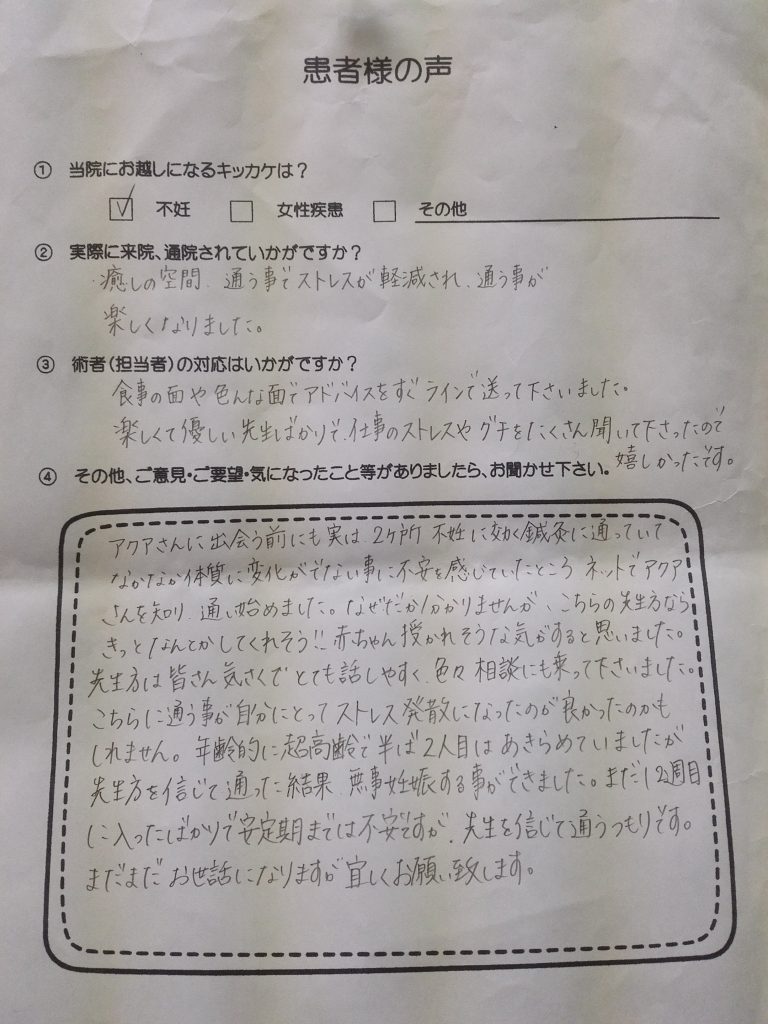 患者様の声
① 当院にお越しになるキッカケは？
☑ 不妊 □ 女性疾患 □ その他
② 実際に来院、通院されていかがですか？
癒しの空間、通う事でストレスが軽減され、通う事が
楽しくなりました。
③ 術者（担当者）の対応はいかがですか？
食事の面や色んな面でアドバイスをすぐラインで送って下さいました。
楽しくて優しい先生ばかりで、仕事のストレスやグチをたくさん聞いて下さったので
嬉しかったです。
④ その他、ご意見・ご要望・気になったこと等がありましたら、お聞かせ下さい。
アクアさんに出会う前にも実は、2ヶ所 不妊に効く鍼灸に通っていて
なかなか体質に変化がでない事に不安を感じていたところ ネットでアクア
さんを知り、通い始めました。なぜだか分かりませんが、こちらの先生方なら
きっとなんとかしてくれそう!! 赤ちゃん授かれそうな気がすると思いました。
先生方は皆さん気さくでとても話しやすく、色々相談にも乗って下さいました。
こちらに通う事が自分にとってストレス発散になったのが良かったのかも
しれません。年齢的に超高齢で半ば2人目はあきらめていましたが
先生方を信じて通った結果、無事妊娠する事ができました。まだ12週目
に入ったばかりで安定期までは不安ですが、先生を信じて通うつもりです。
まだまだお世話になりますが宜しくお願い致します。